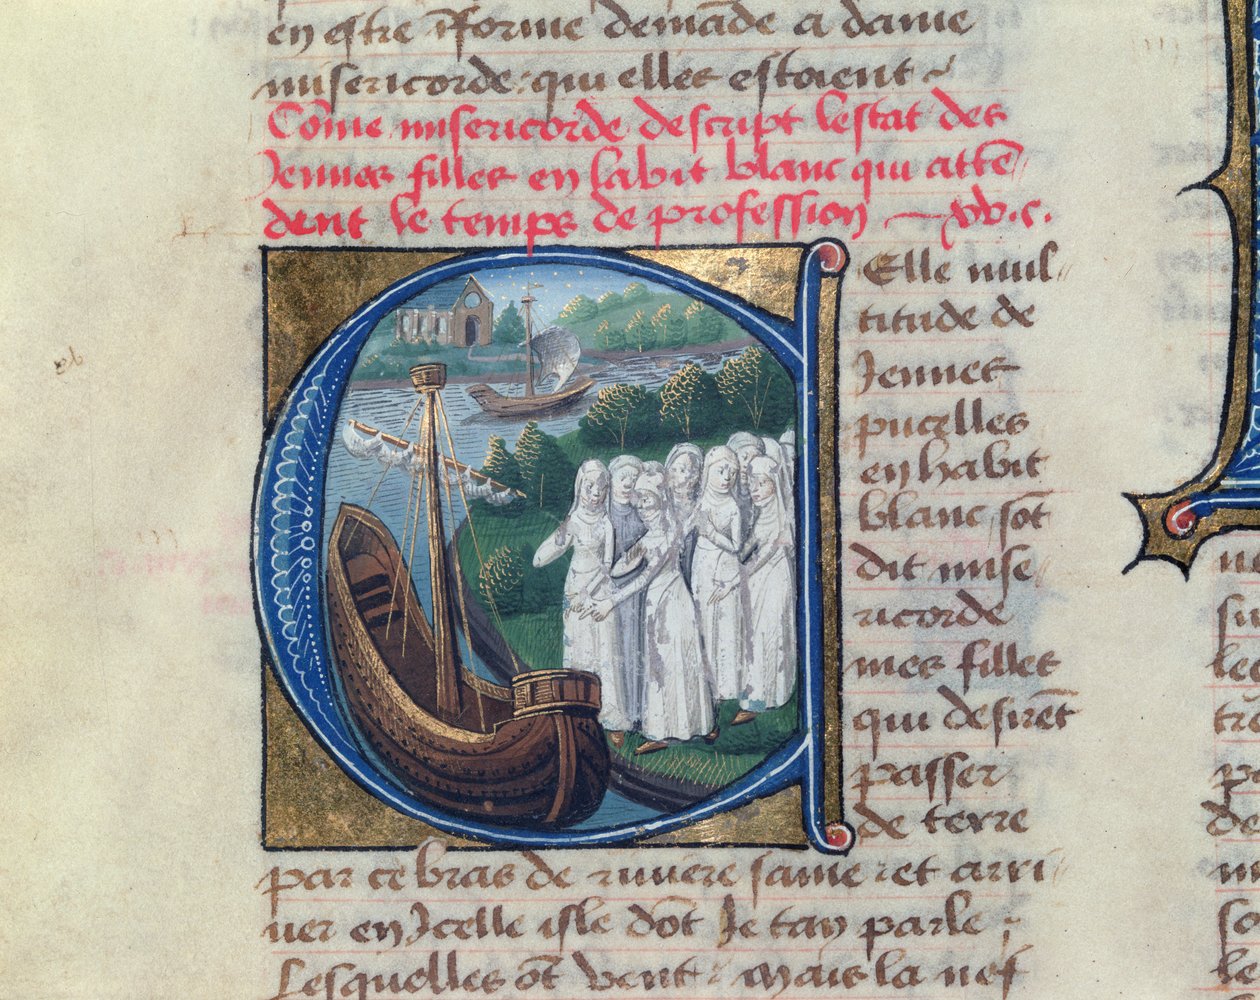 en estre īforme demāde a dame
misericorde: qui elles estoient
Cōme misericorde descript lestat des
Jennes filles en labit blanc qui attē
dent le temps de profession xv.c.
Elle mul
titude de
Jennes
pucelles
en habit
blanc sōt
dit mise
ricorde
mes filles
qui desirēt
passer
de terre
par ce bras de riuiere saine: et arri
uer en Jcelle isle dōt Je tay parle:
Lesquelles ōt vent: Mais la nef